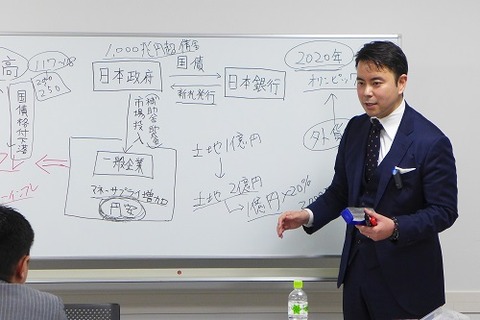 1,000兆円超 借金
高
117~118
200
250
国債格付下落
日本政府
国債
新札発行
日本銀行
市場投入
補助金助成
一般企業
マネーサプライ増加
円安
土地1億円
土地 2億円
1億円×20%
2020年
オリンピック